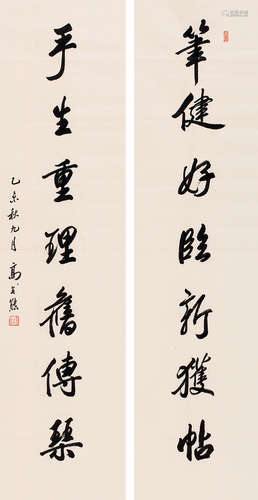 筆健好臨新獲帖
手生重理舊傳琴
乙未秋九月 高式熊